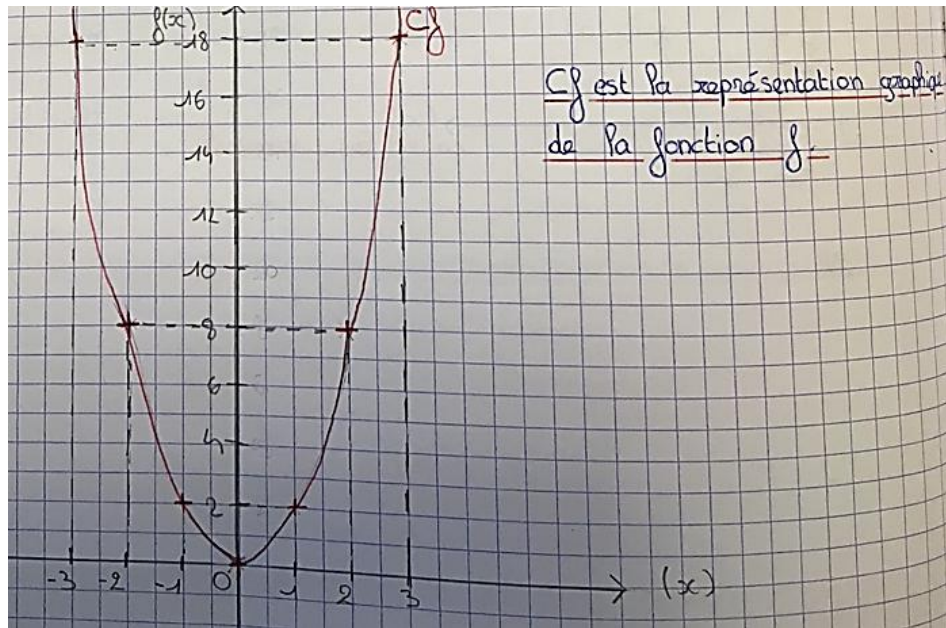 f(x)
Cf
18
16
14
12
10
8
6
4
2
-3 -2 -1 0 1 2 3 (x)
Cf est la représentation graphiqu
de la fonction f.